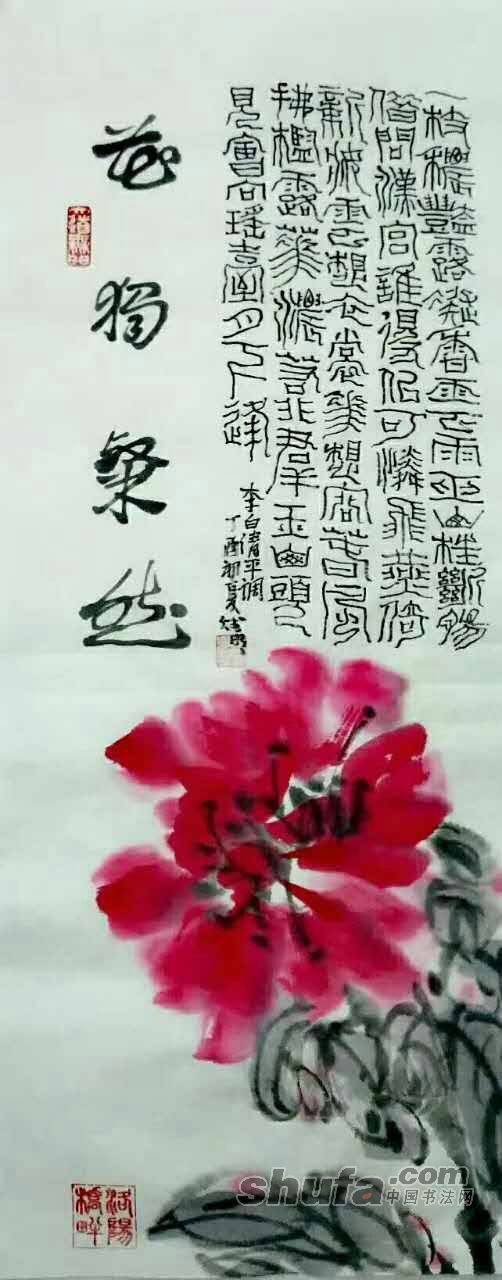 一枝穠豔露凝香雲雨巫山枉斷腸
借問漢宮誰得似可憐飛燕倚
新妝雲想衣裳華想容春風
拂檻露華濃若非羣玉山頭
見會向瑶臺月下逢
李白清平调
丁酉初夏
花獨粲然
洛陽橋畔
shufa.com
中国书法网